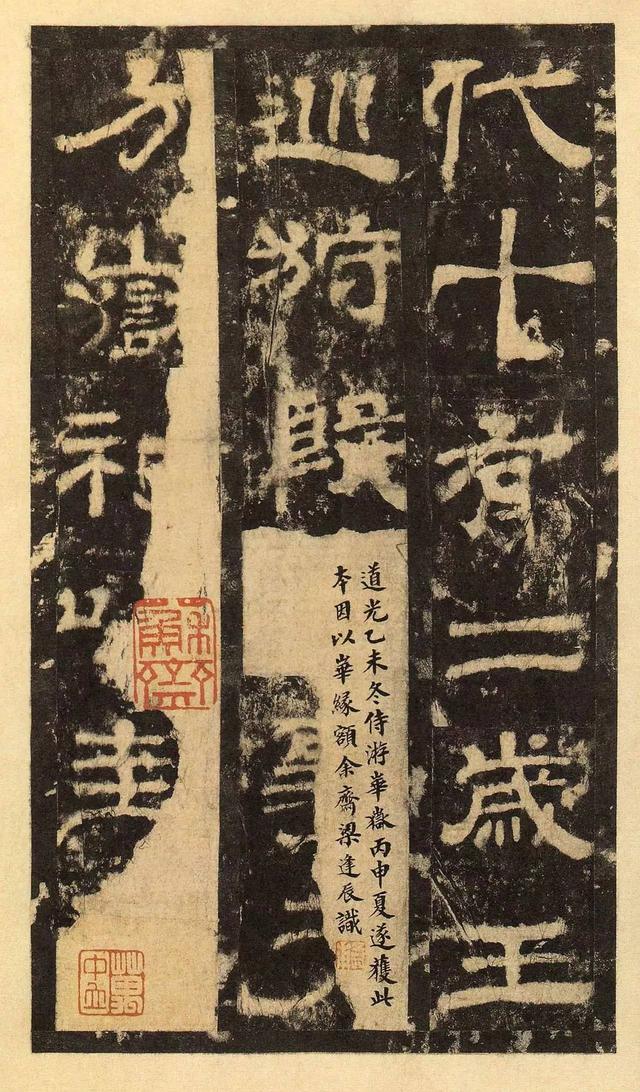 代十有二歲王
巡狩殷
道光乙未冬侍游華嶽丙申夏遂獲此
本因以華緣額余齋梁逢辰識
方嶽祀以圭